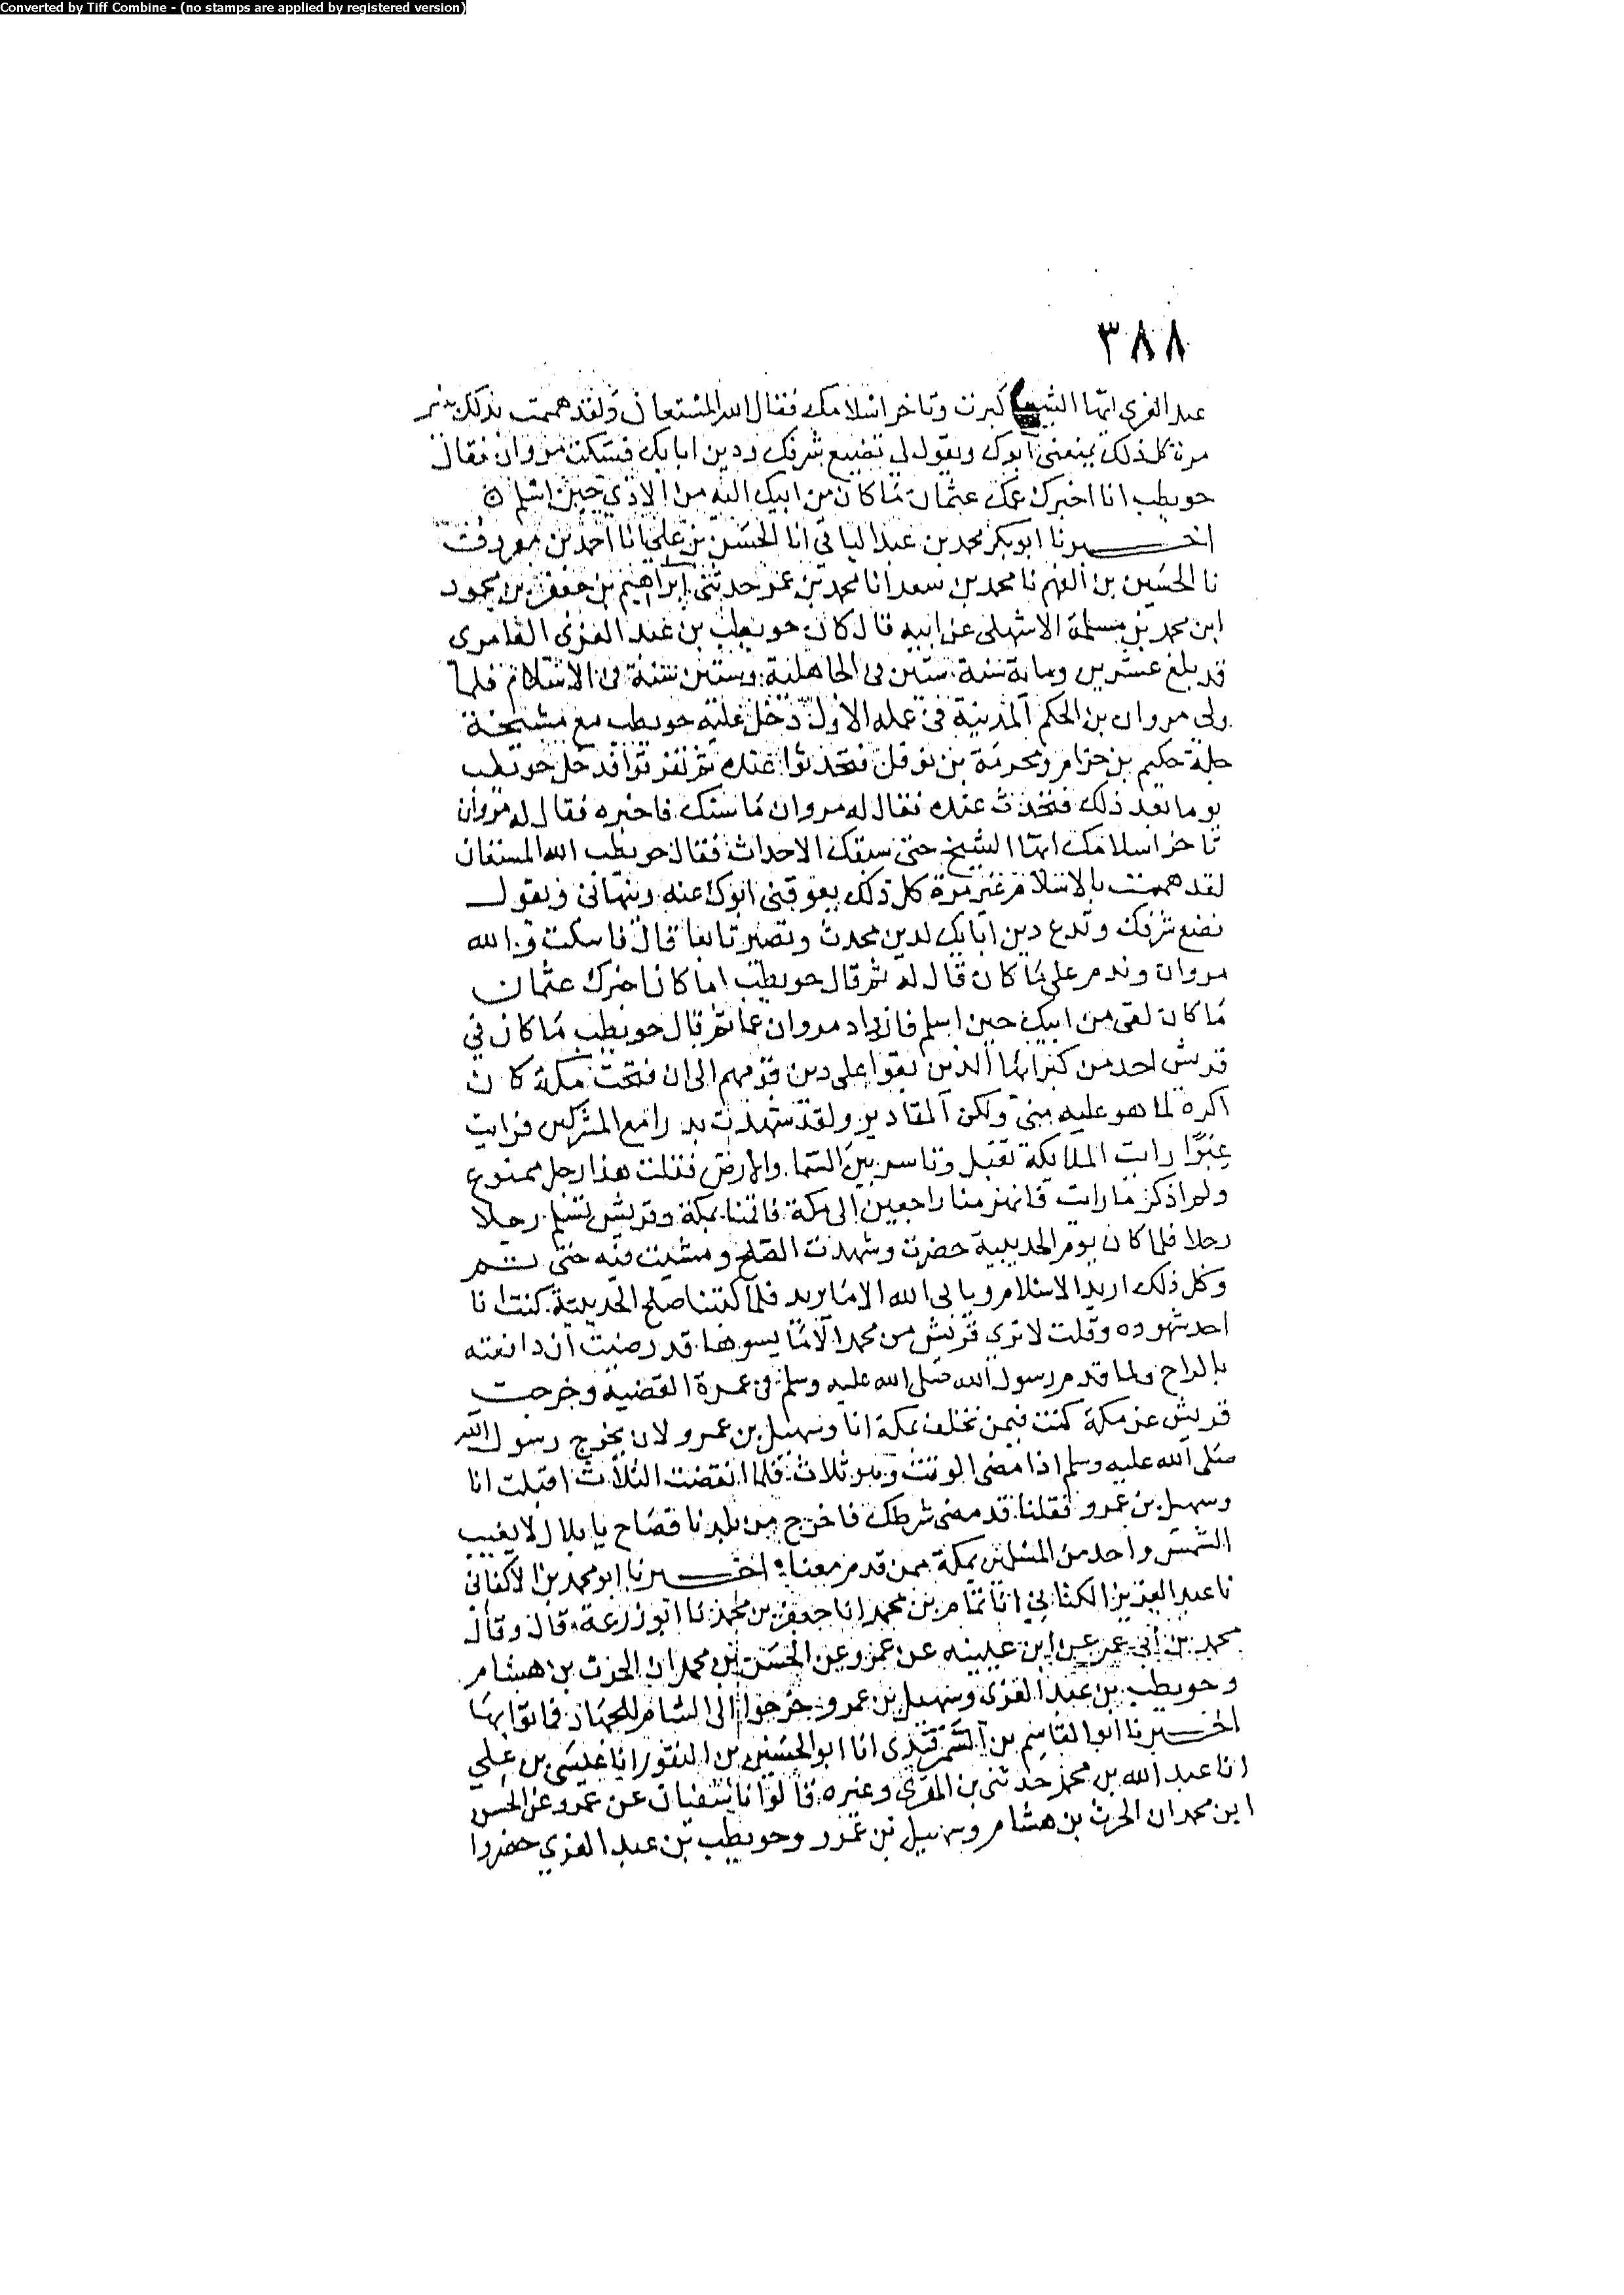 Converted by Tiff Combine - (no stamps are applied by registered version)
٣٨٨
عبد العزى ايها الشيخ كبرت وتاخر اسلامك فقال الله المستعان ولقد هممت بذلك غير
مرة كل ذلك يمنعنى ابوك ويقول لى تضيع شرفك ودين ابايك فسكت مروان فقال
حويطب انا اخبرك عمك عثمان ما كان من ابيك اليه من الاذى حين اسلم
اخبرنا ابو بكر محمد بن عبد الباقى انا الحسن بن على انا احمد بن معروف
نا الحسين بن الفهم نا محمد بن سعد انا محمد بن عمر حدثنى ابراهيم بن جعفر بن محمود
ابن محمد بن مسلمة الاشهلى عن ابيه قال كان حويطب بن عبد العزى العامرى
قد بلغ عشرين ومايه سنة ستين فى الجاهلية وستين سنة فى الاسلام فلما
ولى مروان بن الحكم المدينة فى عمله الاول دخل عليه حويطب مع مشيخة
جلة حكيم بن حزام ومخرمة بن نوفل فتحدثوا عنده ثم تفرقوا فدخل حويطب
يوما بعد ذلك فتحدث عنده فقال له مروان ما سنك فاخبره فقال له مروان
تاخر اسلامك ايها الشيخ حتى سبقك الاحداث فقال حويطب الله المستعان
لقد هممت بالاسلام غير مرة كل ذلك يعوقنى ابوك عنه وينهانى ويقول
تضع شرفك وتدع دين ابايك لدين محدث وتصير تابعا قال فاسكت والله
مروان وندم على ما كان قال له ثم قال حويطب اما كان اخبرك عثمان
ما كان لقى من ابيك حين اسلم فازداد مروان غما ثم قال حويطب ما كان فى
قريش احد من كبرايها الذين بقوا على دين قومهم الى ان فتحت مكة كان
اكره لما هو عليه منى ولكن المقادير ولقد شهدت بدرا مع المشركين فرايت
عبرا رايت الملايكة تقتل وتاسر بين السما والارض فقلت هذا رجل ممنوع
ولم اذكر ما رايت فانهزمنا راجعين الى مكة فاقمنا بمكة وقريش تسلم رجلا
رجلا فلما كان يوم الحديبية حضرت وشهدت الصلح ومشيت فيه حتى تم
وكل ذلك اريد الاسلام ويابى الله الا ما يريد فلما كتبنا صلح الحديبية كنت انا
احد شهوده وقلت لا ترى قريش من محمد الا ما يسوها قد رضيت ان دافعته
بالراح ولما قدم رسول الله صلى الله عليه وسلم فى عمرة القضية وخرجت
قريش عن مكة كنت فيمن تخلف بمكة انا وسهيل بن عمرو لان يخرج رسول الله
صلى الله عليه وسلم اذا مضى الوقت وهو ثلاث فلما انقضت الثلاث اقبلت انا
وسهيل بن عمرو فقلنا قد مضى شرطك فاخرج من بلدنا فصاح يا بلال لا يغيب
الشمس واحد من المسلمين بمكة ممن قدم معنا اخبرنا ابو محمد بن الاكفانى
نا عبد العزيز الكتانى انا تمام بن محمد انا جعفر بن محمد نا ابو زرعة قال وقال
محمد بن ابى عمر عن ابن عيينه عن عمرو عن الحسن بن محمد ان الحرث بن هشام
وحويطب بن عبد العزى وسهيل بن عمرو خرجوا الى الشام للجهاد فماتوا بها
اخبرنا ابو القاسم بن السمرقندى انا ابو الحسين بن النقور انا عيسى بن على
انا عبد الله بن محمد حدثنى بن المقرى وغيره قالوا نا سفيان عن عمرو عن الحسن
ابن محمد ان الحرث بن هشام وسهيل بن عمرو وحويطب بن عبد العزى حضروا